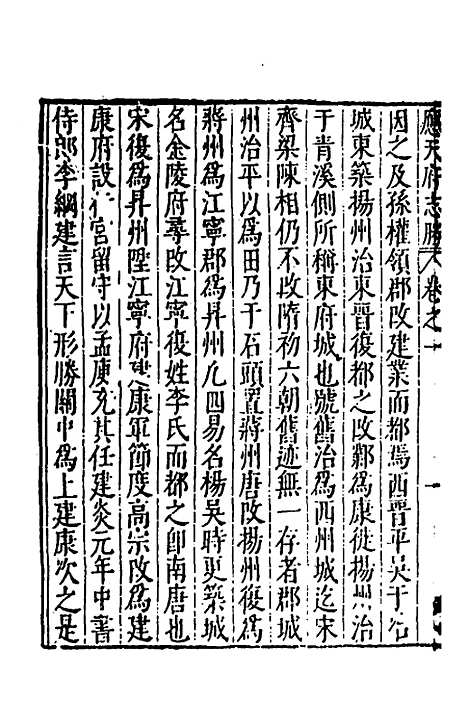 應天府志勝 卷之一
因之及孫權領郡改建業而都焉西晉平吳于石
城東築揚州治東晉復都之改鄴爲康徙揚州治
于青溪側所稱東府城也號舊治爲西州城迄宋
齊梁陳相仍不改隋初六朝舊迹無一存者郡城
州治平以爲田乃于石頭置蔣州唐改揚州復爲
蔣州爲江寧郡爲昇州凡四易名楊吳時更築城
名金陵府尋改江寧復姓李氏而都之卽南唐也
宋復爲昇州陞江寧府建康軍節度高宗改爲建
康府設行宮留守以孟庾充其任建炎元年中書
侍郎李綱建言天下形勝關中爲上建康次之是